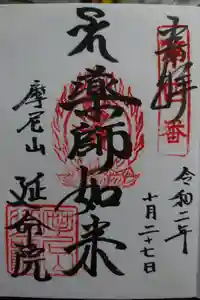 奉拝
番
令和二年
十月二十七日
薬師如来
摩尼山
延命院